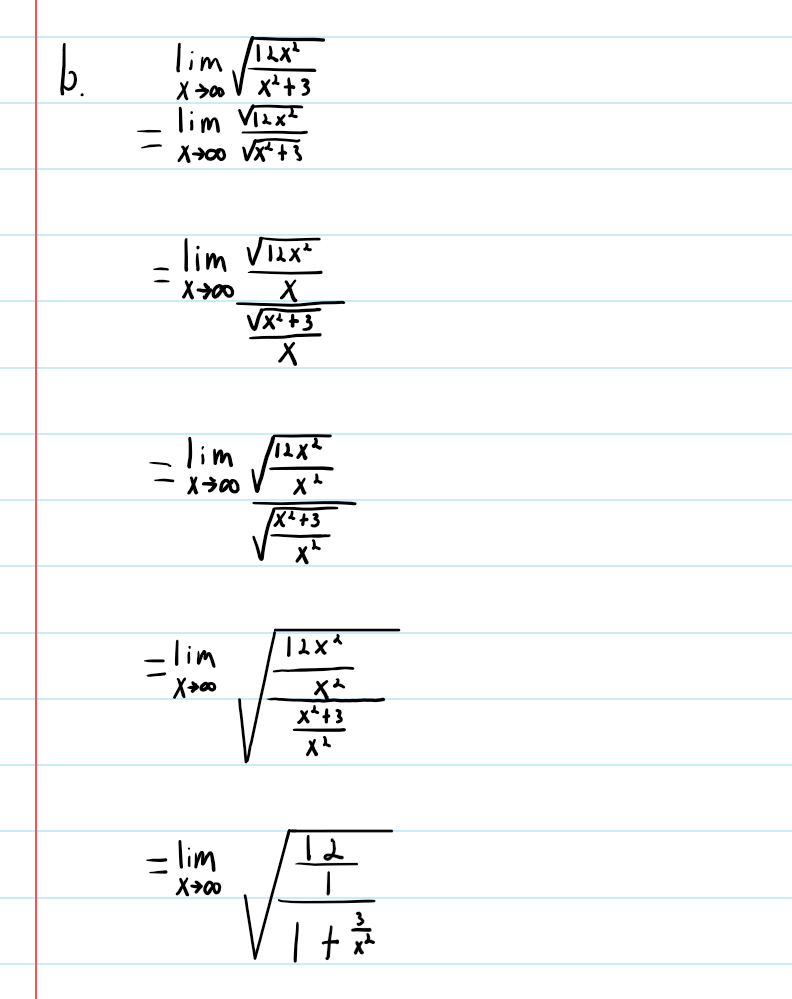 b. lim x→∞ √(12x²/(x²+3))
= lim x→∞ √(12x²)/√(x²+3)
= lim x→∞ (√(12x²)/x)/(√(x²+3)/x)
= lim x→∞ √(12x²/x²)/√((x²+3)/x²)
= lim x→∞ √((12x²/x²)/((x²+3)/x²))
= lim x→∞ √((12/1)/(1+3/x²))